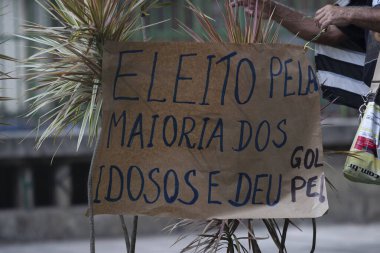 ELEITO PELA
MAIORIA DOS
IDOSOS E DEU GOL
PE!